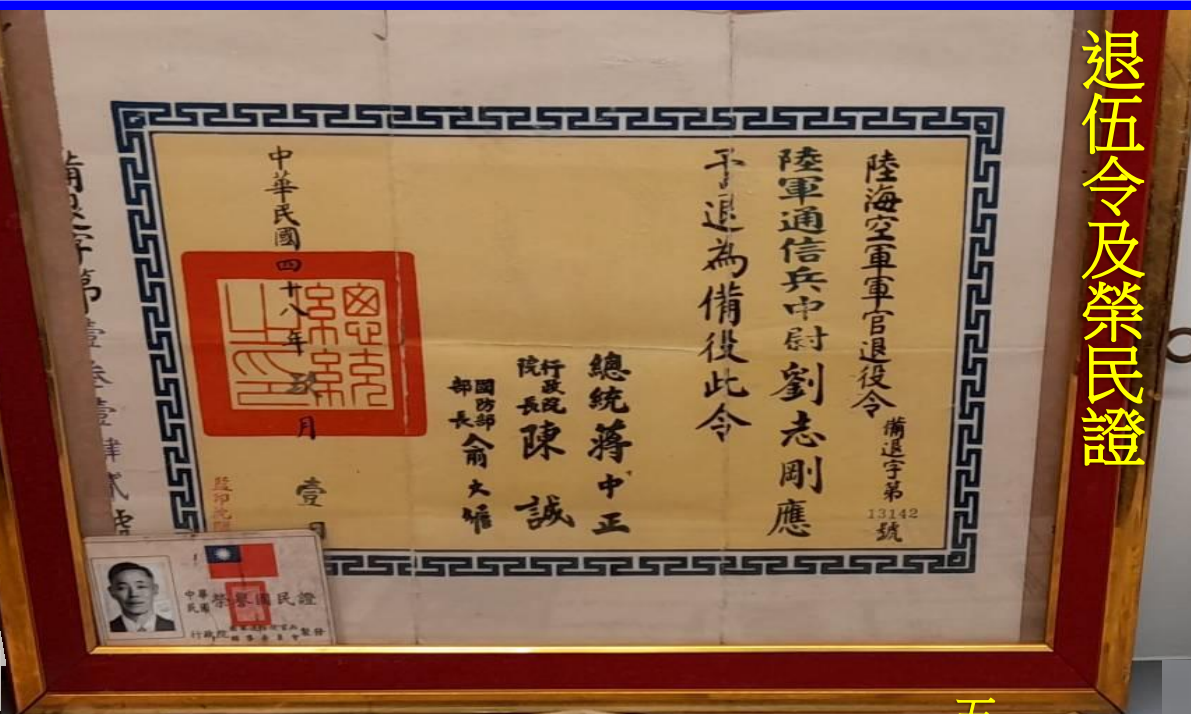 退伍令及榮民證
陸海空軍軍官退役令
備退字第
13142
號
陸軍通信兵中尉劉志剛應
予退為備役此令
總統蔣中正
行政院
院長陳誠
國防部
部長俞大維
中華民國四十八年玖月壹日
總統之印
備退字第壹叁壹肆貳號
中華
民國
榮譽國民證
行政院
製發
五